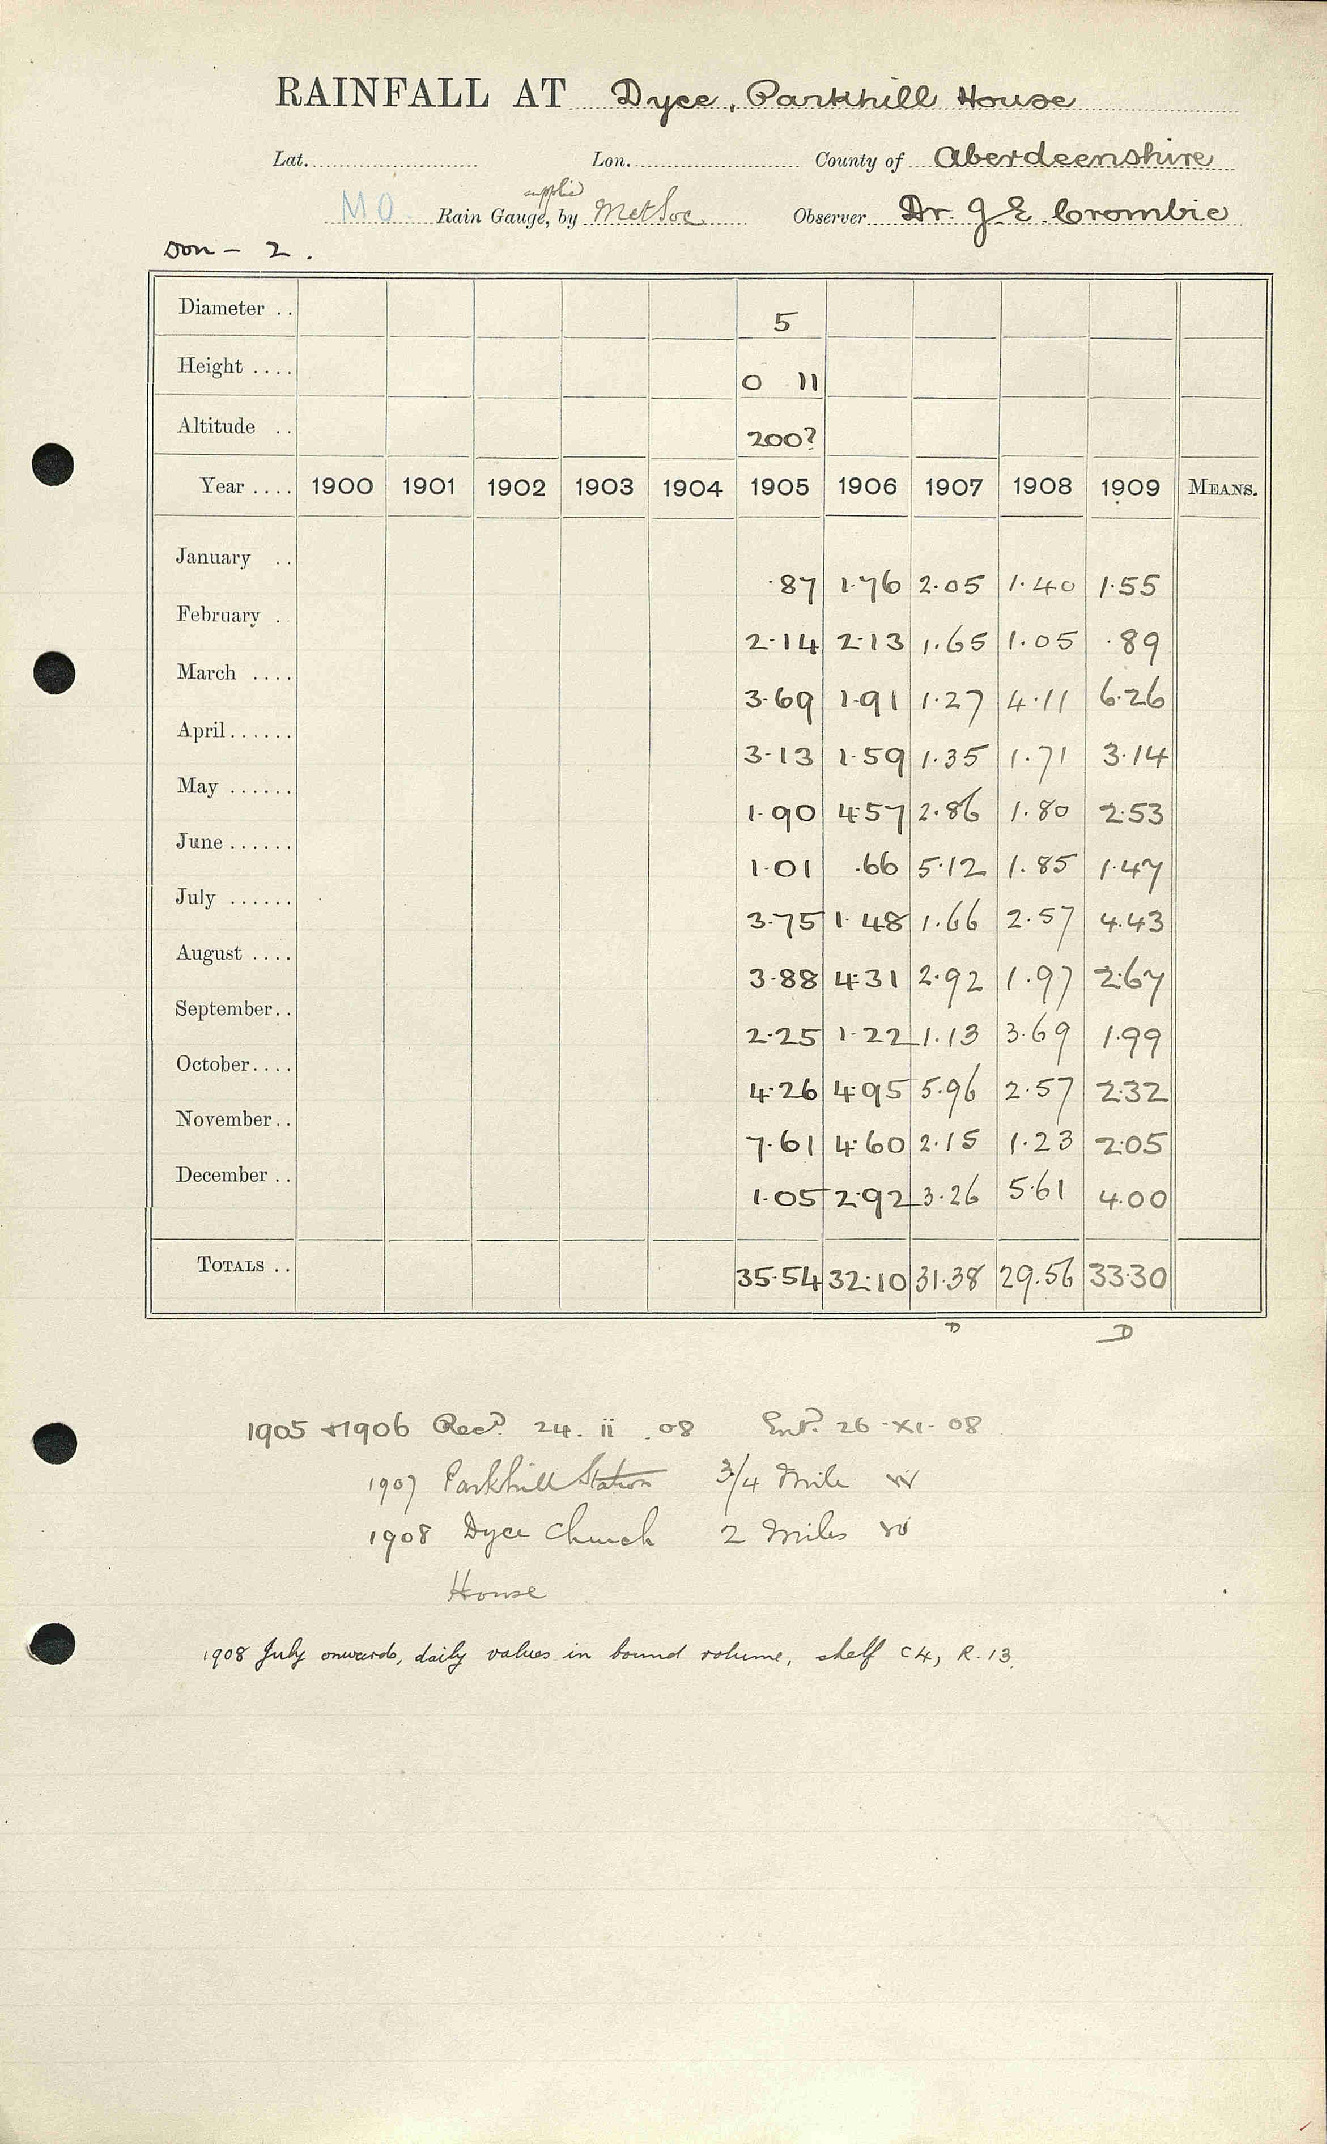 RAINFALL AT Dyce, Parkhill House
Lat. Lon. County of Aberdeenshire
M O. Rain Gauge, supplied by Met Soc Observer Dr. J E Crombie
Don - 2.
Diameter .. 5
Height .... 0 11
Altitude .. 200?
Year .... 1900 1901 1902 1903 1904 1905 1906 1907 1908 1909 MEANS.
January .. .87 1.76 2.05 1.40 1.55
February . 2.14 2.13 1.65 1.05 .89
March .... 3.69 1.91 1.27 4.11 6.26
April...... 3.13 1.59 1.35 1.71 3.14
May ...... 1.90 4.57 2.86 1.80 2.53
June ...... 1.01 .66 5.12 1.85 1.47
July ...... 3.75 1.48 1.66 2.57 4.43
August .... 3.88 4.31 2.92 1.97 2.67
September.. 2.25 1.22 1.13 3.69 1.99
October.... 4.26 4.95 5.96 2.57 2.32
November.. 7.61 4.60 2.15 1.23 2.05
December .. 1.05 2.92 3.26 5.61 4.00
TOTALS .. 35.54 32.10 31.38 29.56 33.30
D D
1905 & 1906 Recd. 24. ii. 08 Entd. 26-XI-08
1907 Parkhill Station 3/4 Mile W
1908 Dyce Church 2 Miles W
House
1908 July onwards, daily values in bound volume, shelf C4, R.13.